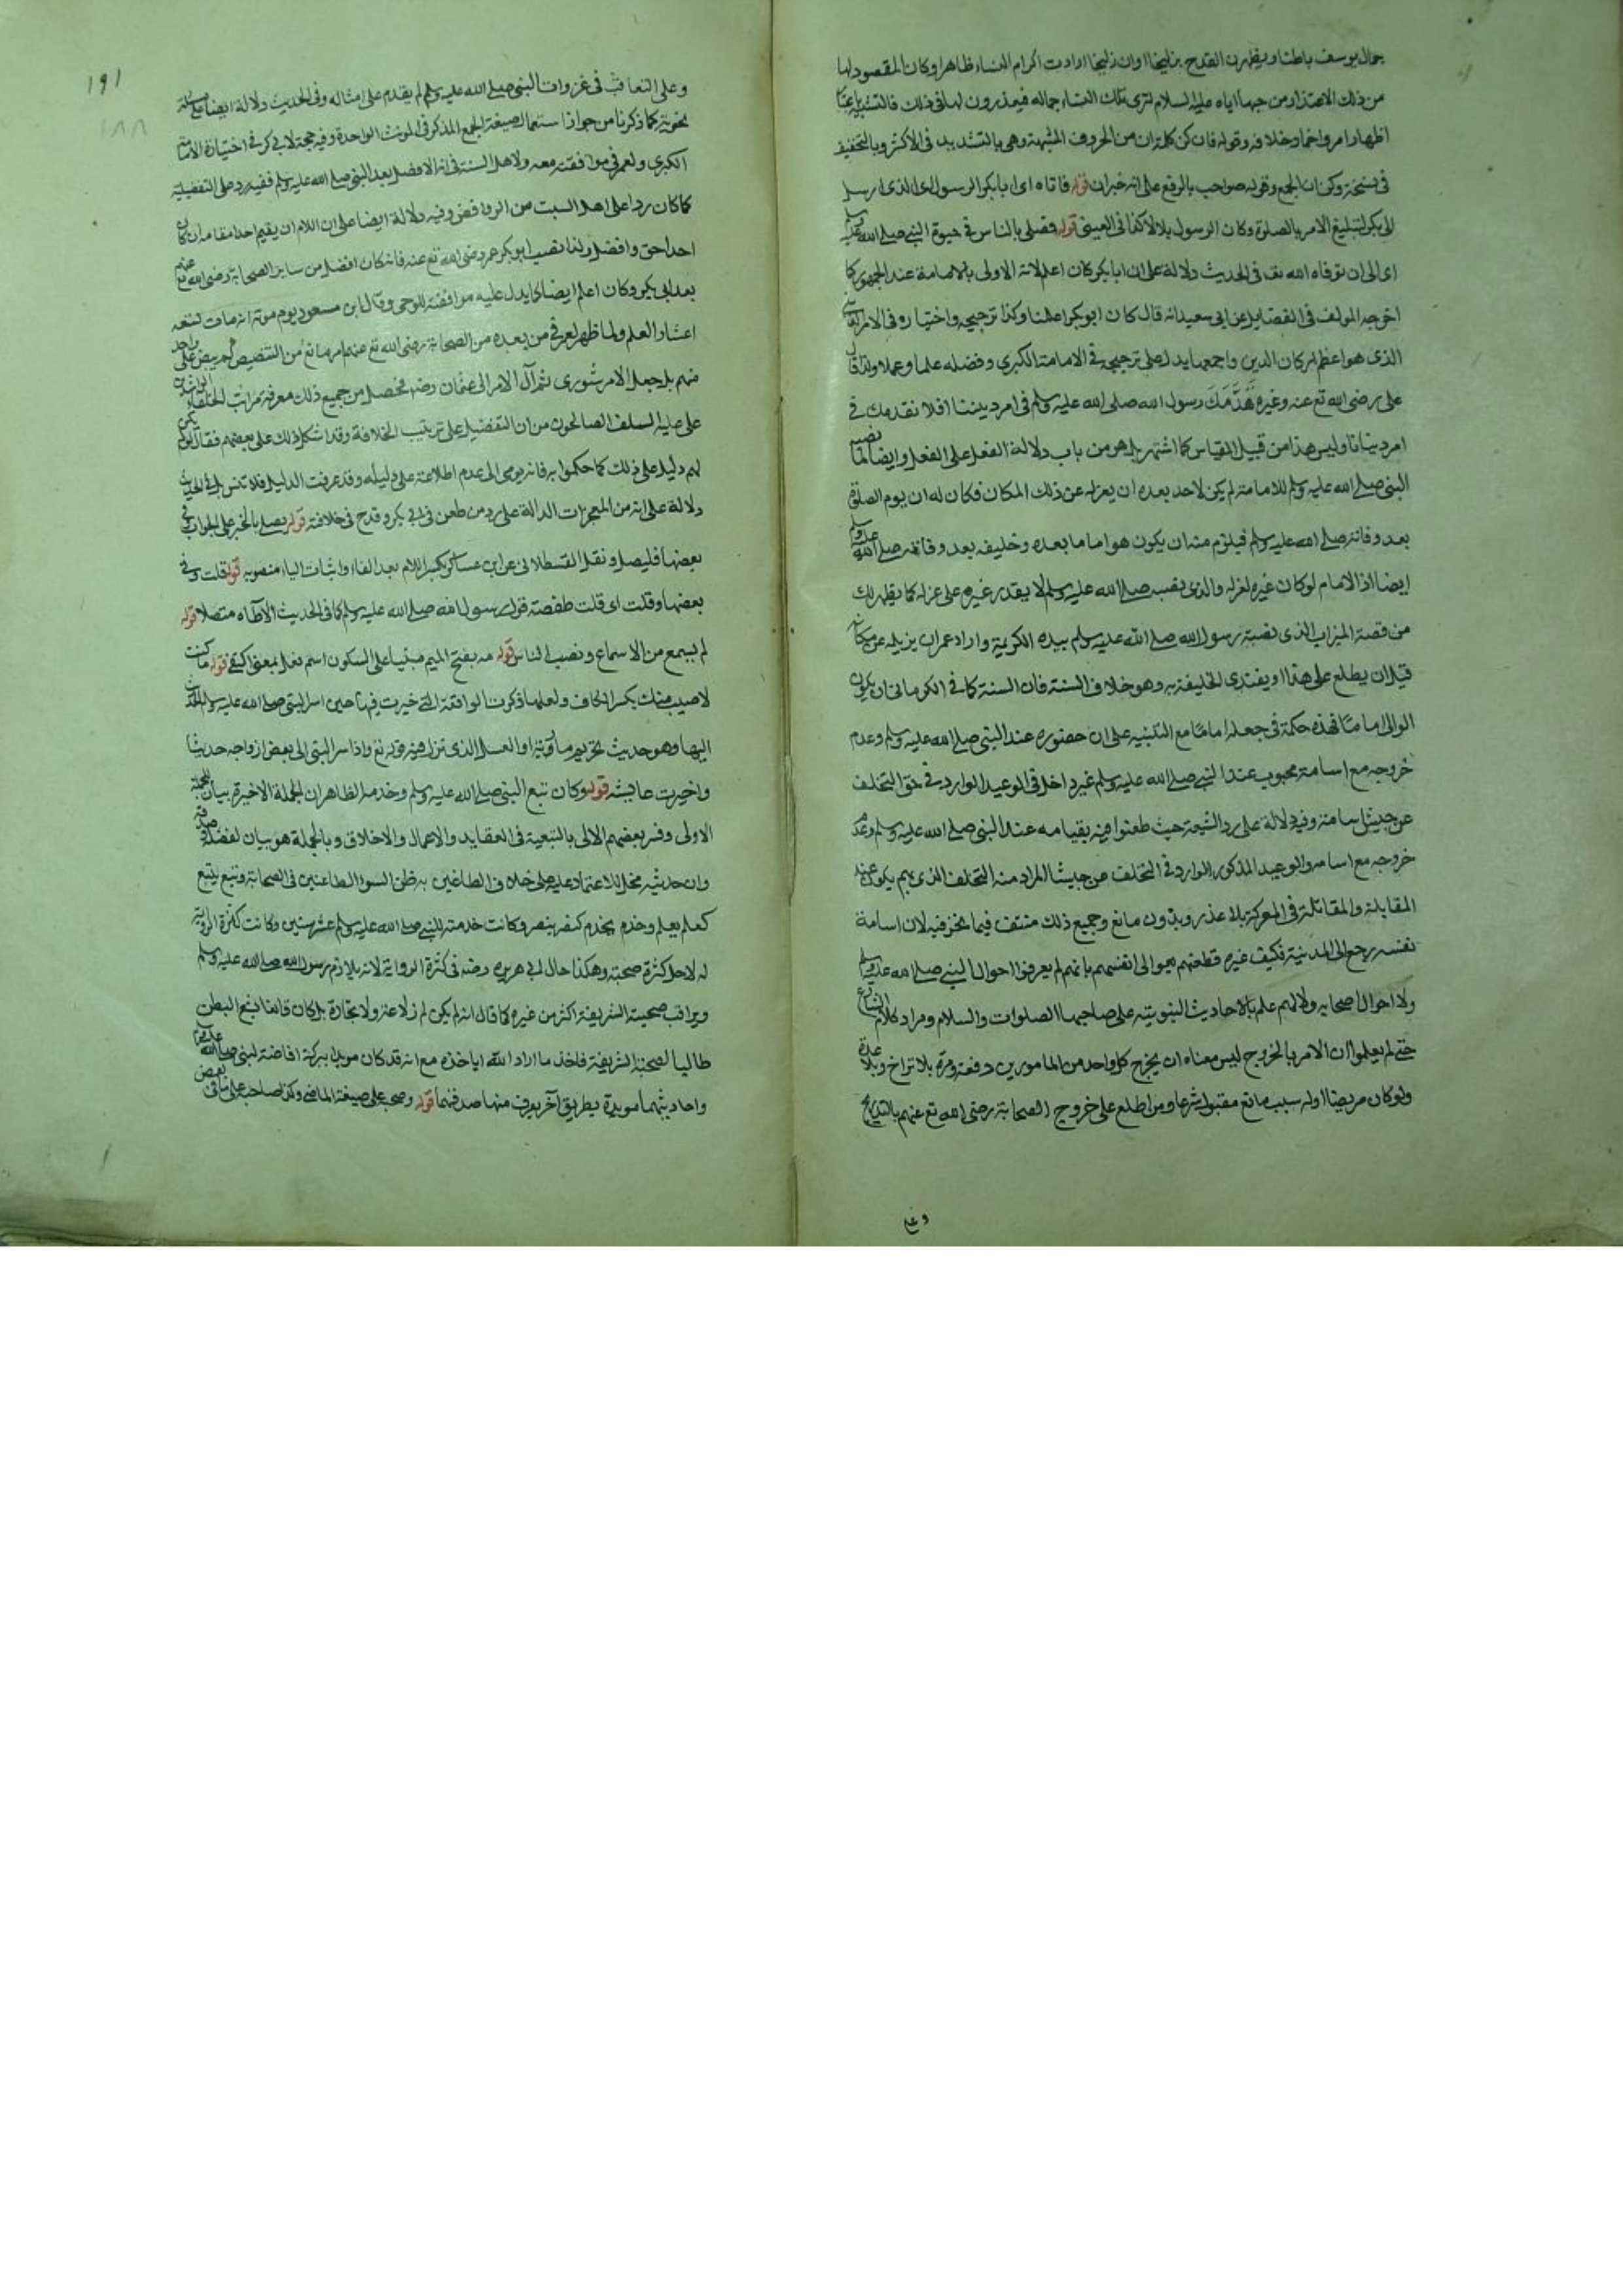 جمال يوسف باطنا ويظهرن القدح بزليخا وان زليخا ارادت اكرام النساء ظاهرا وكان المقصود لها
من ذلك الاعتذار من حبها اياه عليه السلام لترى تلك النساء جماله فيعذرون لها في ذلك فالتشبيه
اظهار امر واخماد خلافه وقوله فان كن كلمة ان من الحروف المشبهة وهي بالتشديد في الاكثر وبالتخفيف
في نسخة وكن ان الجمع وقوله صواحب بالرفع على انه خبر ان قوله فاتاه اى ابا بكر الرسول اى الذى ارسل
الى بكر لتبليغ الامر بالصلوة وكان الرسول بلالا كذا في العيني قوله فصلى بالناس في حيوة النبي صلى الله عليه وسلم
اى الى ان توفاه الله تعـ في الحديث دلالة على ان ابا بكر كان اعلم لانه الاولى بالامامة عند الجمهور كما
اخرجه المؤلف في الفضايل عن ابى سعيد انه قال كان ابو بكر اعلمنا وكذا ترجيحه واختياره في الامر
الذى هو اعظم اركان الدين واجمعها يدل على ترجيحه في الامامة الكبرى وفضله علما وعملا ولذا قال
على رضى الله تع عنه وغيره قدمك رسول الله صلى الله عليه وسلم في امر ديننا افلا نقدمك في
امر دنيانا وليس هذا من قبيل القياس كما اشتهر بل هو من باب دلالة الفعل على الفعل وايضا لما نصبه
النبى صلى الله عليه وسلم للامامة لم يكن لاحد بعده ان يعزله عن ذلك المكان فكان له ان يوم الصلوة
بعد وفاته صلى الله عليه وسلم فيلزم منه ان يكون هو اماما بعده وخليفه بعد وفاته صلى الله عليه وسلم
ايضا اذ الامام لو كان غيره لعزله والذى نصبه صلى الله عليه وسلم لا يقدر غيره على عزله كما يظهر لك
من قصة الميزاب الذى نصبه رسول الله صلى الله عليه وسلم بيده الكريمة واراد عمر ان يزيله عن مكانه
قبل ان يطلع على هذا ويقتدى الخليفة به وهو خلاف السنة فان السنة كما في الكرمانى ان يكون
الوالى اماما فهذه حكمة في جعله اماما مع التنبيه على ان حضوره عند النبى صلى الله عليه وسلم وعدم
خروجه مع اسامة محبوب عند النبى صلى الله عليه وسلم غير داخل في الوعيد الوارد في حق التخلف
عن جيش اسامة وفيه دلالة على رد الشيعة حيث طعنوا فيه بقيامه عند النبى صلى الله عليه وسلم وعدم
خروجه مع اسامه والوعيد المذكور الوارد في التخلف عن جيشه المراد منه التخلف الذى يكون عند
المقابلة والمقاتلة في المعركة بلا عذر وبدون مانع وجميع ذلك منتف فيما نحن فيه لان اسامة
نفسه رجع الى المدينة فكيف غيره فطعنهم هو الى انفسهم بانهم لم يعرفوا احوال النبى صلى الله عليه وسلم
ولا احوال اصحابه ولا لهم علم بالاحاديث النبوية على صاحبها الصلوات والسلام ومراد كلام الشارع
حتى لم يعلموا ان الامر بالخروج ليس معناه ان يخرج كل واحد من المامورين دفعة ومرة بلا تراخ وبلا عدة
ولو كان مريضا او له سبب مانع مقبول شرعا ومن اطلع على خروج الصحابة رضى الله تع عنهم بالتدريج
وعلى
١٩١
١٨٨
وعلى التعاقب في غزوات النبى صلى الله عليه وسلم لم يقدم على امثاله وفى الحديث دلالة ايضا على مسئلة
نحوية كما ذكرنا من جواز استعمال صيغة الجمع المذكر في المونث الواحدة وفيه حجة لابى بكر في اختيارة الامامة
الكبرى ولعمر في موافقته معه ولاهل السنة في انه الافضل بعد النبى صلى الله عليه وسلم ففيه رد على التفضيلية
كما كان ردا على اهل السبت من الروافض وفيه دلالة ايضا على ان اللام ان يقيم احدا مقامه ان كان
احدا حق وافضل ولذا نصب ابو بكر عمر رضى الله تع عنه فانه كان افضل من ساير الصحابة رضى الله تع عنهم
بعد ابى بكر وكان اعلم ايضا كما يدل عليه موافقته للوحى وقال ابن مسعود يوم موته انه مات تسعة
اعشار العلم ولما ظهر لعمر في من بعده من الصحابة رضى الله تع عنهم امر مانع من التنصيص لم ينص على واحد
منهم بل جعل الامر شورى ثم آل الامر الى عثمان رضه فحصل من جميع ذلك معرفة مراتب الخلفاء الراشدين
على ما عليه السلف الصالحون من ان التفضيل على ترتيب الخلافة وقد اشكل ذلك على بعضهم فقال لو لم يكن
لهم دليل على ذلك لما حكموا به فانه يومى الى عدم اطلاعه على دليله وقد عرفت الدليل فلا تنس بل في الحديث
دلالة على انه من المعجزات الدالة على رد من طعن في ابى بكر وقدح في خلافته قوله يصلى بالخبر على الجواب في
بعضها فليصل ونقل القسطلانى عن ابن عساكر بكسر اللام بعد الفاء واثبات الياء منصوبه قوله قلت وفى
بعضها وقلت اى قلت لحفصة قوله رسول الله صلى الله عليه وسلم كما في الحديث الآتى متصلا قوله
لم يسمع من الاسماع ونصب الناس قوله مه بفتح الميم مبنيا على السكون اسم فعل بمعنى اكفف قوله ما كنت
لاصيب منك بكسر الكاف ولعلها ذكرت الواقعة التى خيرت فيها حين اسر النبى صلى الله عليه وسلم الحديث
اليها وهو حديث تحريم مارية او العسل الذى نزل فيه قوله تع واذ اسر النبى الى بعض ازواجه حديثا
واخبرت عايشه قوله وكان تبع النبى صلى الله عليه وسلم وخدمه الظاهر ان الجملة الاخيرة بيان للجملة
الاولى وفسر بعضهم الاولى بالتبعية في العقايد والاعمال والاخلاق وبالجملة هو بيان لفضله وصدقه
وان حديثه محل للاعتماد عليه على خلاف الطاغين به ظن السوء الطاعنين في الصحابة وتبع يتبع
كعلم يعلم وخدم يخدم كنصر ينصر وكانت خدمته للنبى صلى الله عليه وسلم عشر سنين وكانت كثرة الرواية
له لاجل كثرة صحبته وهكذا حال ابى هريره رضه في كثرة الرواية لانه يلازم رسول الله صلى الله عليه وسلم
ويراقب صحبته الشريفة اكثر من غيره كما قال انه لم يكن له زراعة ولا تجارة بل كان قانعا بشبع البطن
طالبا لصحبته الشريفة فاخذ ما اراد الله اياخذه مع انه قد كان مويدا ببركة افاضة النبى صلى الله عليه وسلم
واحاديثهما مويدة بطريق آخر يعرف منها صدقهما قوله وصحبه على صيغة الماضى وكذا صاحبه على ما في بعض